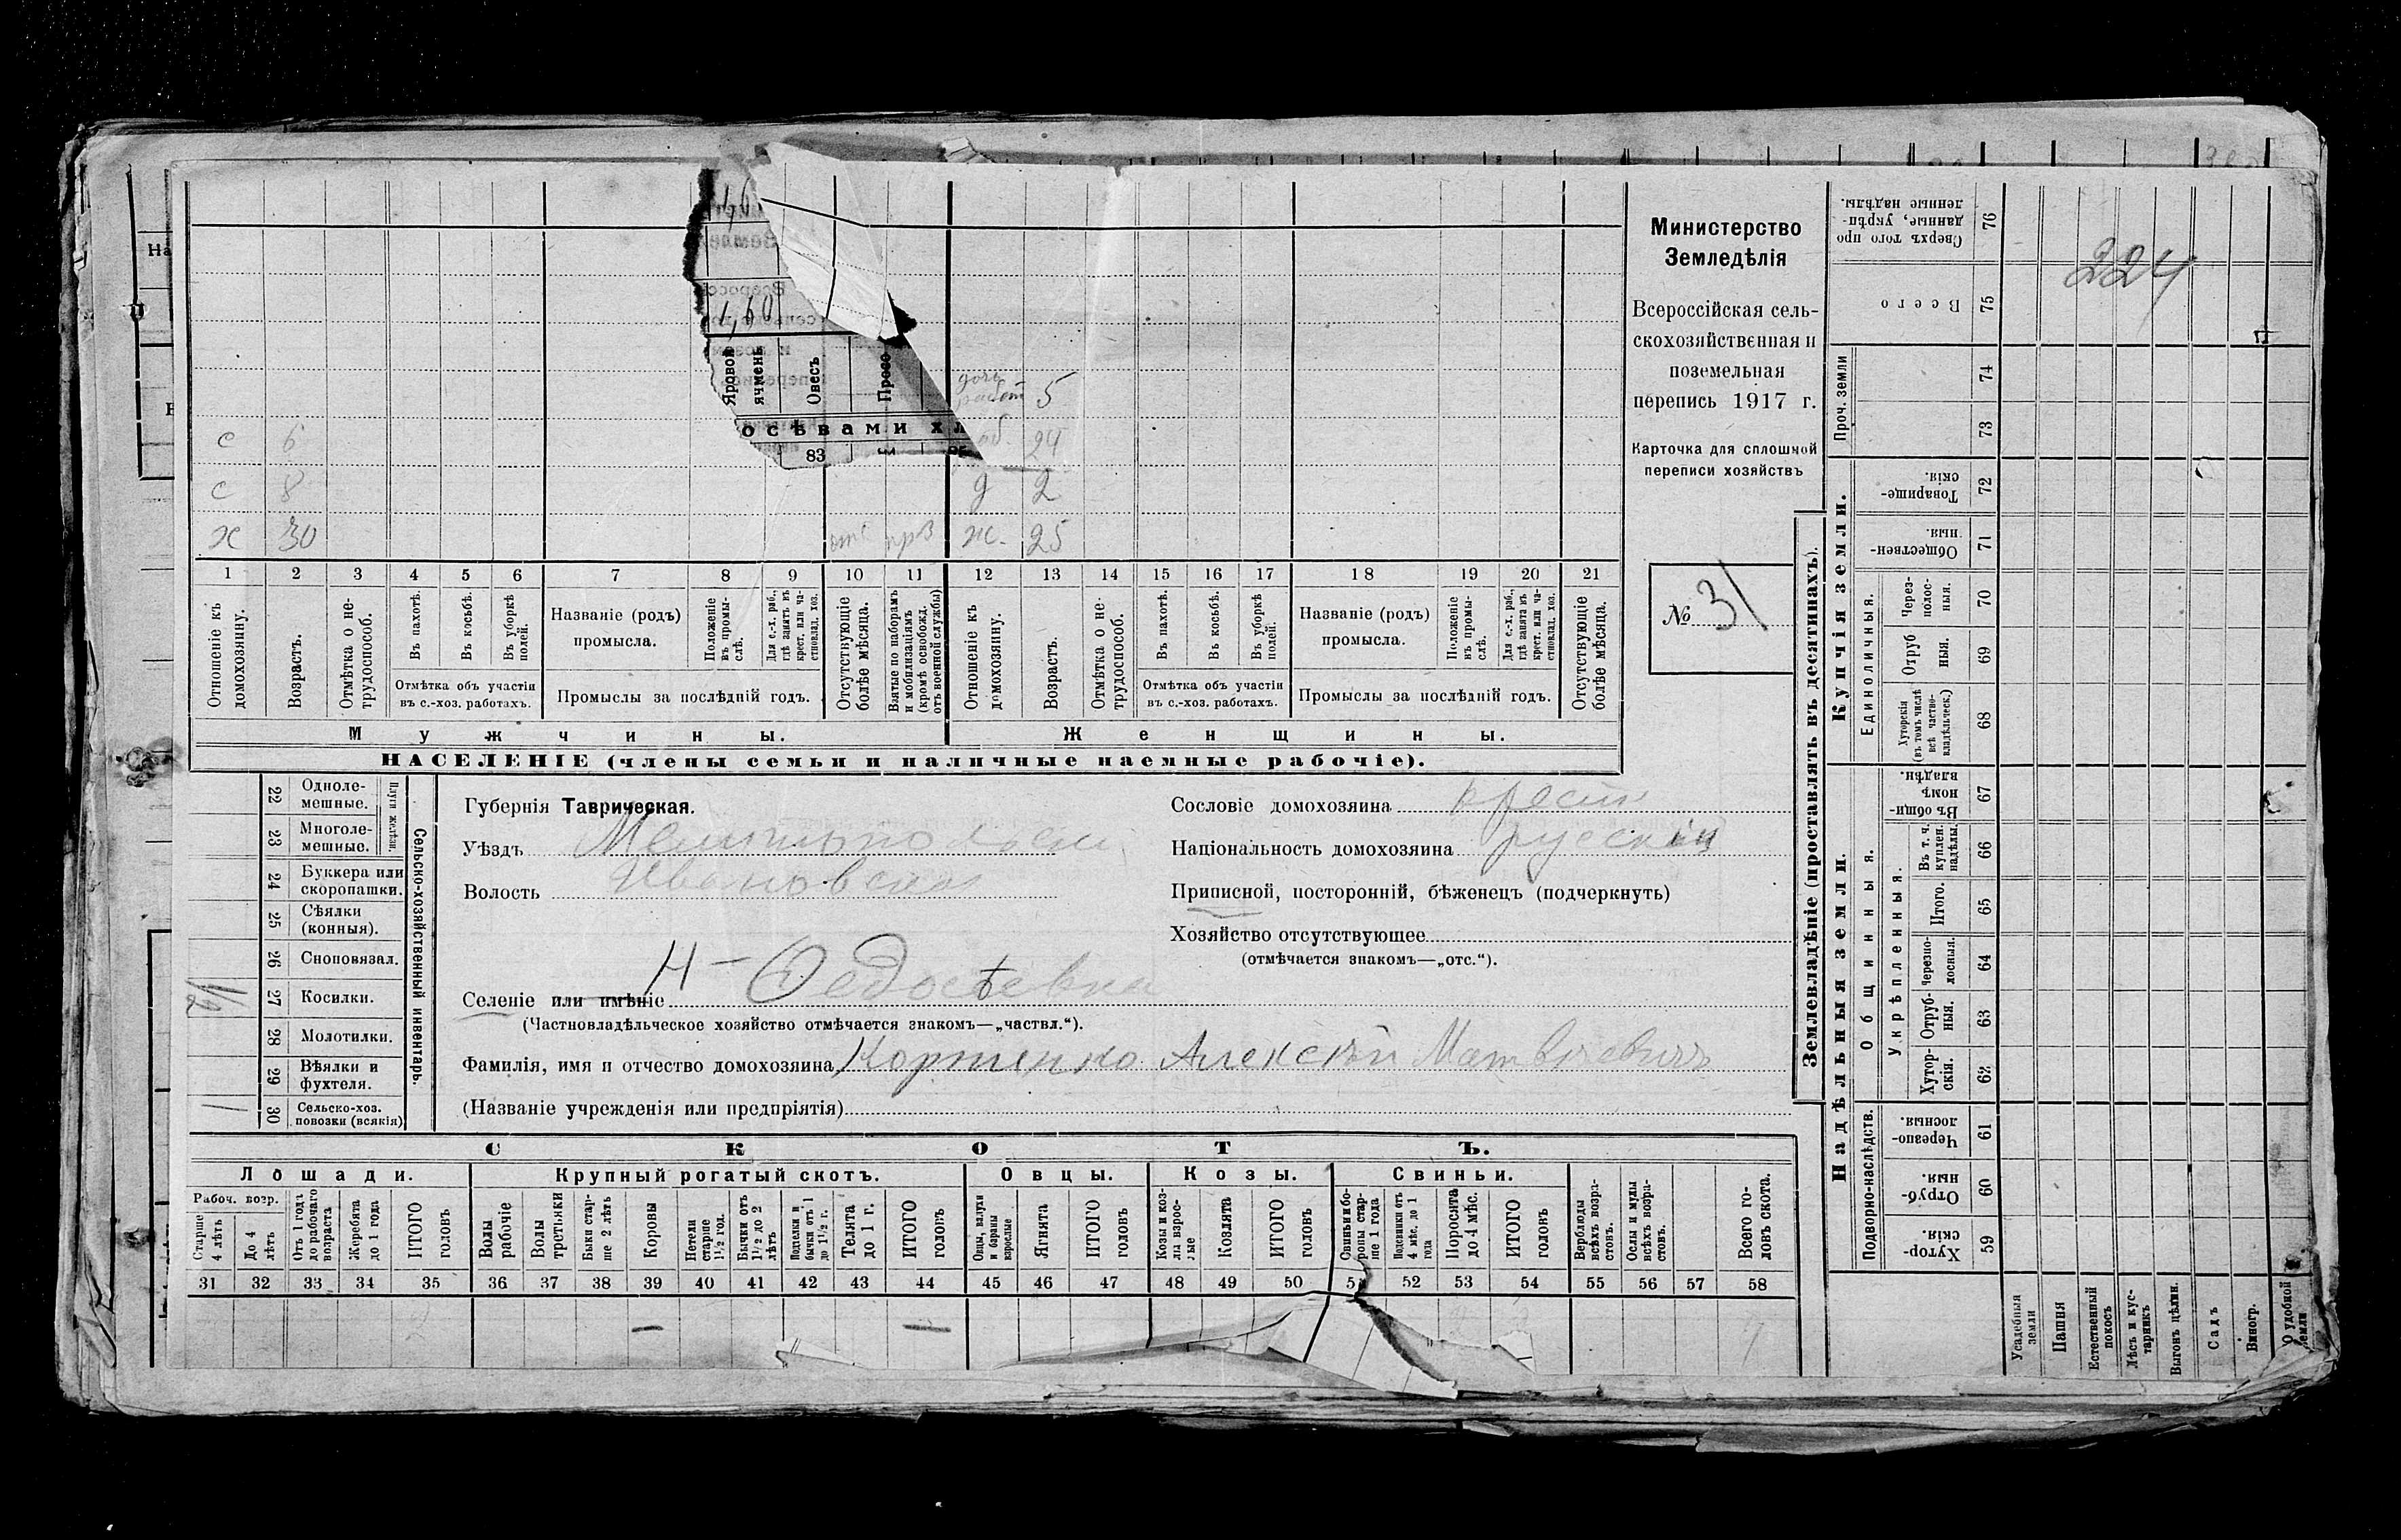 Министерство
Земледѣлія
Всероссійская сель-
скохозяйственная и
поземельная
перепись 1917 г.
Карточка для сплошной
переписи хозяйствъ
№ 31
224
Яровой ячмень
Овесъ
Просо
83
5
с 6 24
с 8 д 2
х 30 отс ж. 25
1 2 3 4 5 6 7 8 9 10 11 12 13 14 15 16 17 18 19 20 21
Отношеніе къ домохозяину.
Возрастъ.
Отмѣтка о не-трудоспособ.
Въ пахотѣ.
Въ косьбѣ.
Въ уборкѣ полей.
Отмѣтка объ участіи
въ с.-хоз. работахъ.
Названіе (родъ)
промысла.
Положеніе въ промы-слѣ.
Для с.-х. раб., гдѣ занятъ въ крест. или ча-стновлад. хоз.
Промыслы за послѣдній годъ.
Отсутствующіе болѣе мѣсяца.
Взятые по наборамъ и мобилизаціямъ (кромѣ освобожд. отъ военной службы)
Отношеніе къ домохозяину.
Возрастъ.
Отмѣтка о не-трудоспособ.
Въ пахотѣ.
Въ косьбѣ.
Въ уборкѣ полей.
Отмѣтка объ участіи
въ с.-хоз. работахъ.
Названіе (родъ)
промысла.
Положеніе въ промы-слѣ.
Для с.-х. раб., гдѣ занятъ въ крест. или ча-стновлад. хоз.
Промыслы за послѣдній годъ.
Отсутствующіе болѣе мѣсяца.
Мужчины. Женщины.
НАСЕЛЕНІЕ (члены семьи и наличные наемные рабочіе).
Сельско-хозяйственный инвентарь.
Плуги желѣзн.
22 Одноле-мешные.
23 Многоле-мешные.
24 Буккера или скоропашки.
25 Сѣялки (конныя).
26 Сноповязал.
1/2 27 Косилки.
28 Молотилки.
29 Вѣялки и фухтеля.
1 30 Сельско-хоз. повозки (всякія)
Губернія Таврическая.
Уѣздъ Мелитопольск
Волость Ивановская
Селеніе или имѣніе Н-Федосѣевка
(Частновладѣльческое хозяйство отмѣчается знакомъ—„частвл.“).
Фамилія, имя и отчество домохозяина Алексѣй Матвѣевичъ
(Названіе учрежденія или предпріятія)
Сословіе домохозяина крест
Національность домохозяина русскій
Приписной, посторонній, бѣженецъ (подчеркнуть)
Хозяйство отсутствующее
(отмѣчается знакомъ—„отс.“).
СКОТЪ.
Лошади. Крупный рогатый скотъ. Овцы. Козы. Свиньи.
Рабоч. возр.
Старше 4 лѣтъ
До 4 лѣтъ
Отъ 1 года до рабочаго возраста
Жеребята до 1 года
ИТОГО головъ
Волы рабочіе
Волы третьяки
Быки стар-ше 2 лѣтъ
Коровы
Нетели старше 1 1/2 год.
Бычки отъ 1 1/2 до 2 лѣтъ
Подтелки и бычки отъ 1 до 1 1/2 г.
Телята до 1 г.
ИТОГО головъ
Овцы, валухи и бараны взрослые
Ягнята
ИТОГО головъ
Козы и коз-лы взрос-лые
Козлята
ИТОГО головъ
Свиньи и бо-ровы стар-ше 1 года
Подсвинки отъ 4 мѣс. до 1 года
Поросята до 4 мѣс.
ИТОГО головъ
Верблюды всѣхъ возра-стовъ.
Ослы и мулы всѣхъ возра-стовъ.
Всего го-ловъ скота.
31 32 33 34 35 36 37 38 39 40 41 42 43 44 45 46 47 48 49 50 51 52 53 54 55 56 57 58
2 — —
Землевладѣніе (проставлять въ десятинахъ).
Надѣльныя земли. Купчія земли.
Подворно-наслѣдств.
Общинныя.
Укрѣпленныя.
Единоличныя.
Проч. земли
Сверхъ того про данные, укрѣп-ленные надѣлы. 76
Всего 75
74
73
Товарище-скія. 72
Обществен-ныя. 71
Через-полос-ныя. 70
Отруб ныя. 69
Хуторскія (въ томъ числѣ всѣ частно-владѣльческ.) 68
Въ общи-номъ владѣн. 67
Въ т. ч. куплен. надѣлы. 66
Итого. 65
Черезпо-лосныя. 64
Отруб-ныя. 63
Хутор-скія. 62
Черезпо-лосныя. 61
Отруб-ныя. 60
Хутор-скія. 59
Усадебныя земли
Пашня
Естественный покосъ
Лѣсъ и кус-тарникъ
Выгонъ цѣлин.
Садъ
Виногр.
О удобной земли